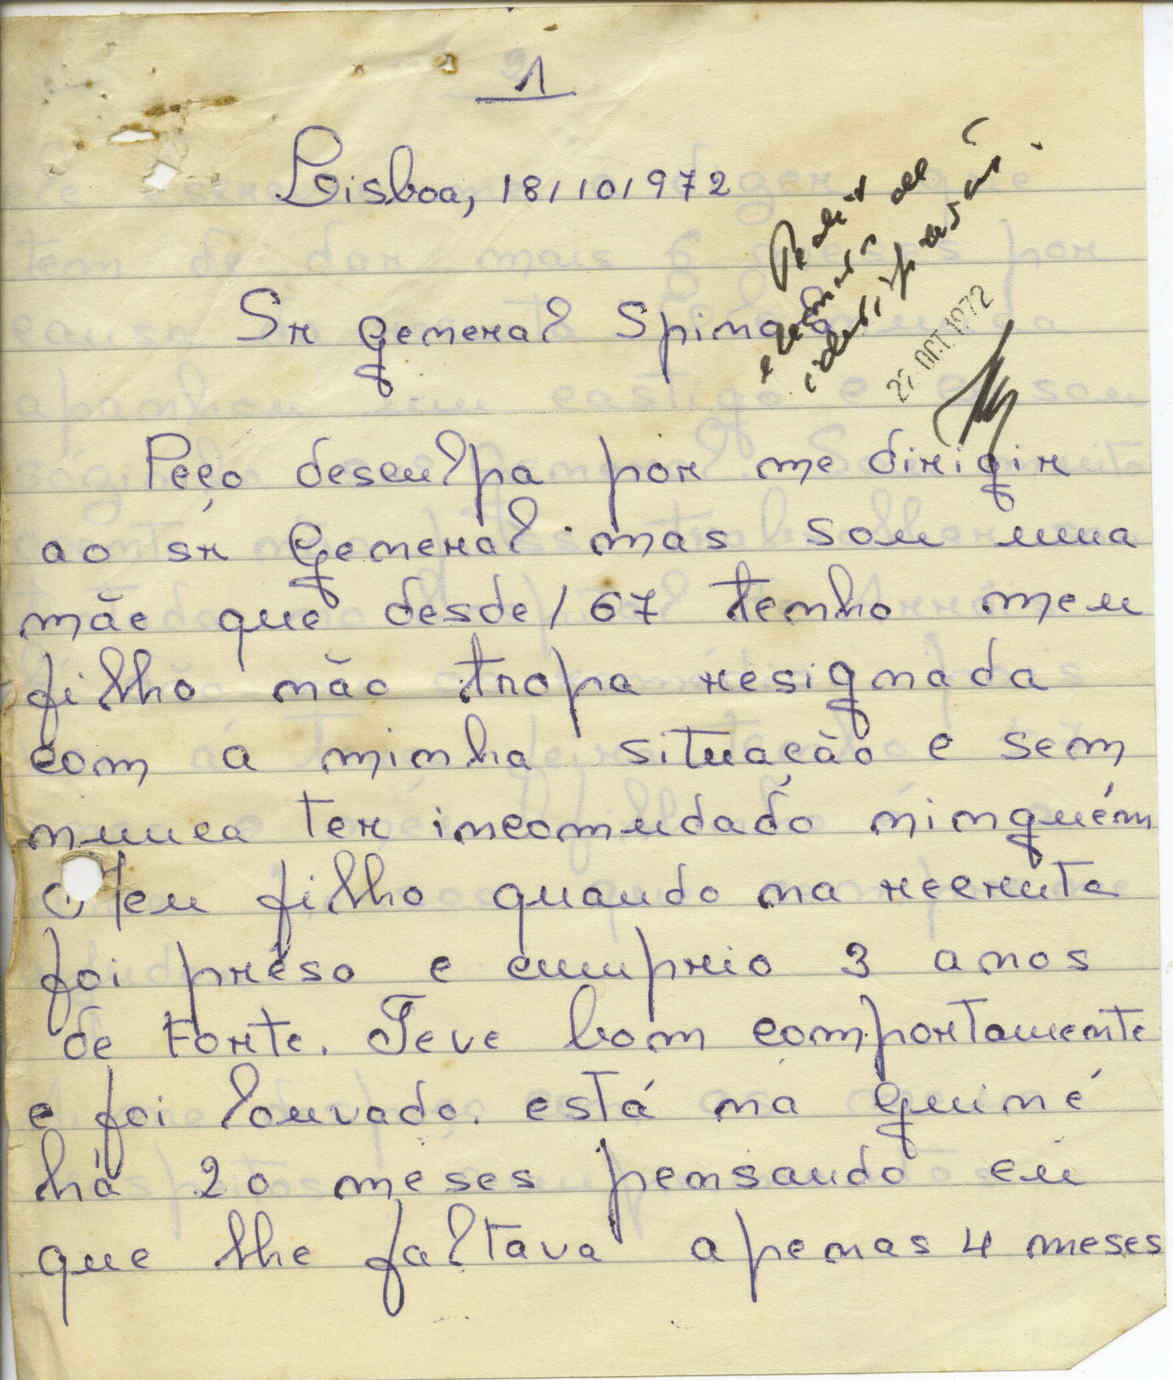 1
Lisboa, 18/10/972
Sr general Spinola
27 OCT. 1972
Peço desculpa por me dirigir
ao sr general mas sou uma
mãe que desde/67 tenho meu
filho não tropa resignada
com a minha situação e sem
nunca ter incomudado ninguém
O meu filho quando na recruta
foi prêso e cumprio 3 anos
de Forte. Teve bom comportamente
e foi louvado. está na Guiné
há 20 meses pensando eu
que lhe faltava apenas 4 meses